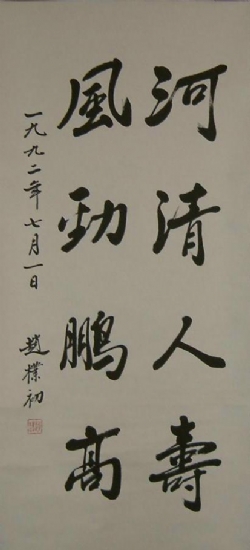 河清人壽
風勁鵬高
一九九二年七月一日
趙樸初